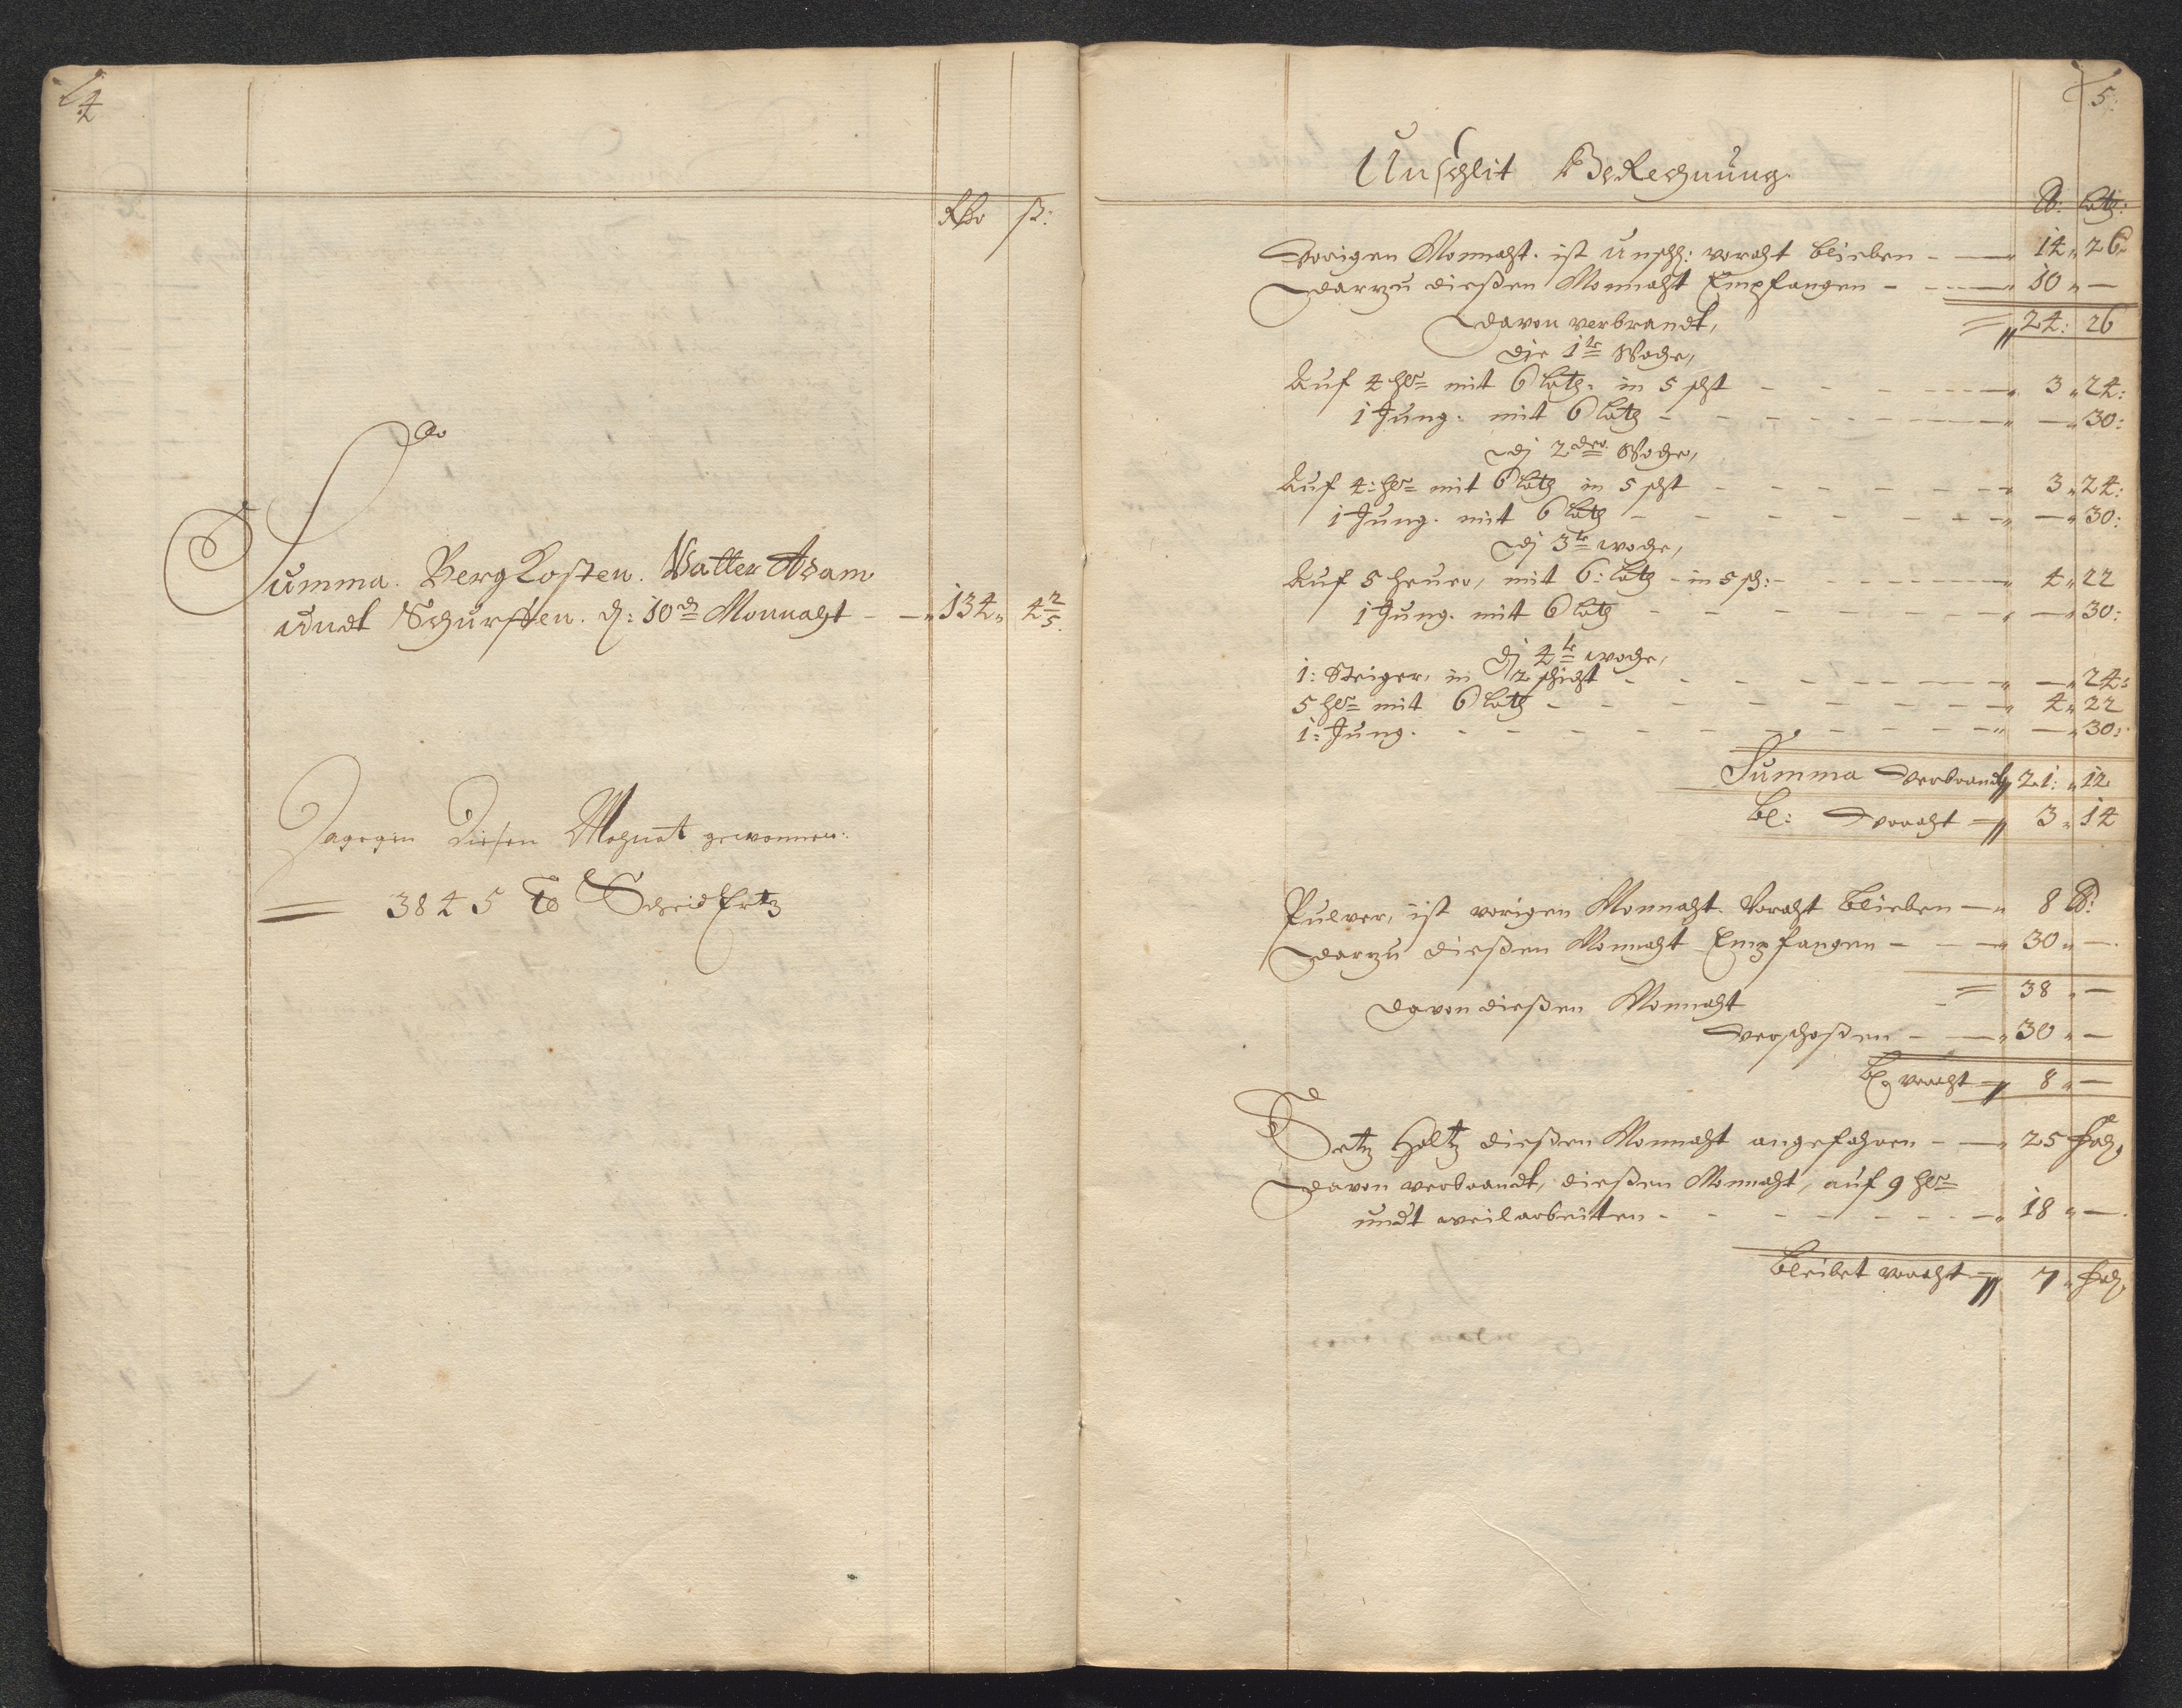 4
Rthr ß:
Summa. Berg Kosten. Vatter Adam
undt Schurffen. d: 10 Monnaht - - 134 „ 4 2/5
Dagegen Diesen Mohnat gewonnen:
= 3845 to Scheid Ertz
5:
Unschlit BeRechnung.
lb: Loth:
Vorigen Monnaht. ist Unschl: voraht blieben - - 14 „ 26
Darzu dießen Monnaht Empfangen - - 10 „ -
Davon verbrandt, = 24: 26
die 1te Woche,
Auf 4 hr= mit 6 Loth. in 5 scht - - 3 „ 24:
1 Jung. mit 6 Loth - - „ 30:
Dj 2der Woche,
Auf 4: hr= mit 6 Loth in 5 scht - - 3 „ 24:
1 Jung. mit 6 Loth - - „ 30:
Dj 3te woche,
Auf 5 heuer, mit 6: Loth - in 5 sch: - - 4 „ 22
1 Jung. mit 6 Loth - - „ 30:
Dj 4te woche,
1: Steiger, in 2 schicht - - „ 24:
5 hr= mit 6 Loth - - 4 „ 22
1: Jung. - - „ 30:
Summa Verbrandt 21: „ 12
bl: Voraht = 3 „ 14
Pulver, ist vorigen Monnaht. Voraht blieben - „ 8 lb:
Darzu dießen Monnaht Empfangen - - 30 „ -
= 38 „ -
Davon dießen Monnaht
Verschoßen - - 30 „ -
bl voraht = 8 „ -
Setz Holtz dießen Monnaht angefahren - - 25 fad,
Davon verbrandt, dießen Monnaht, auf 9 hr=
undt weil arbeitten - - 18 „ -
bleibet voraht = 7 „ fad,